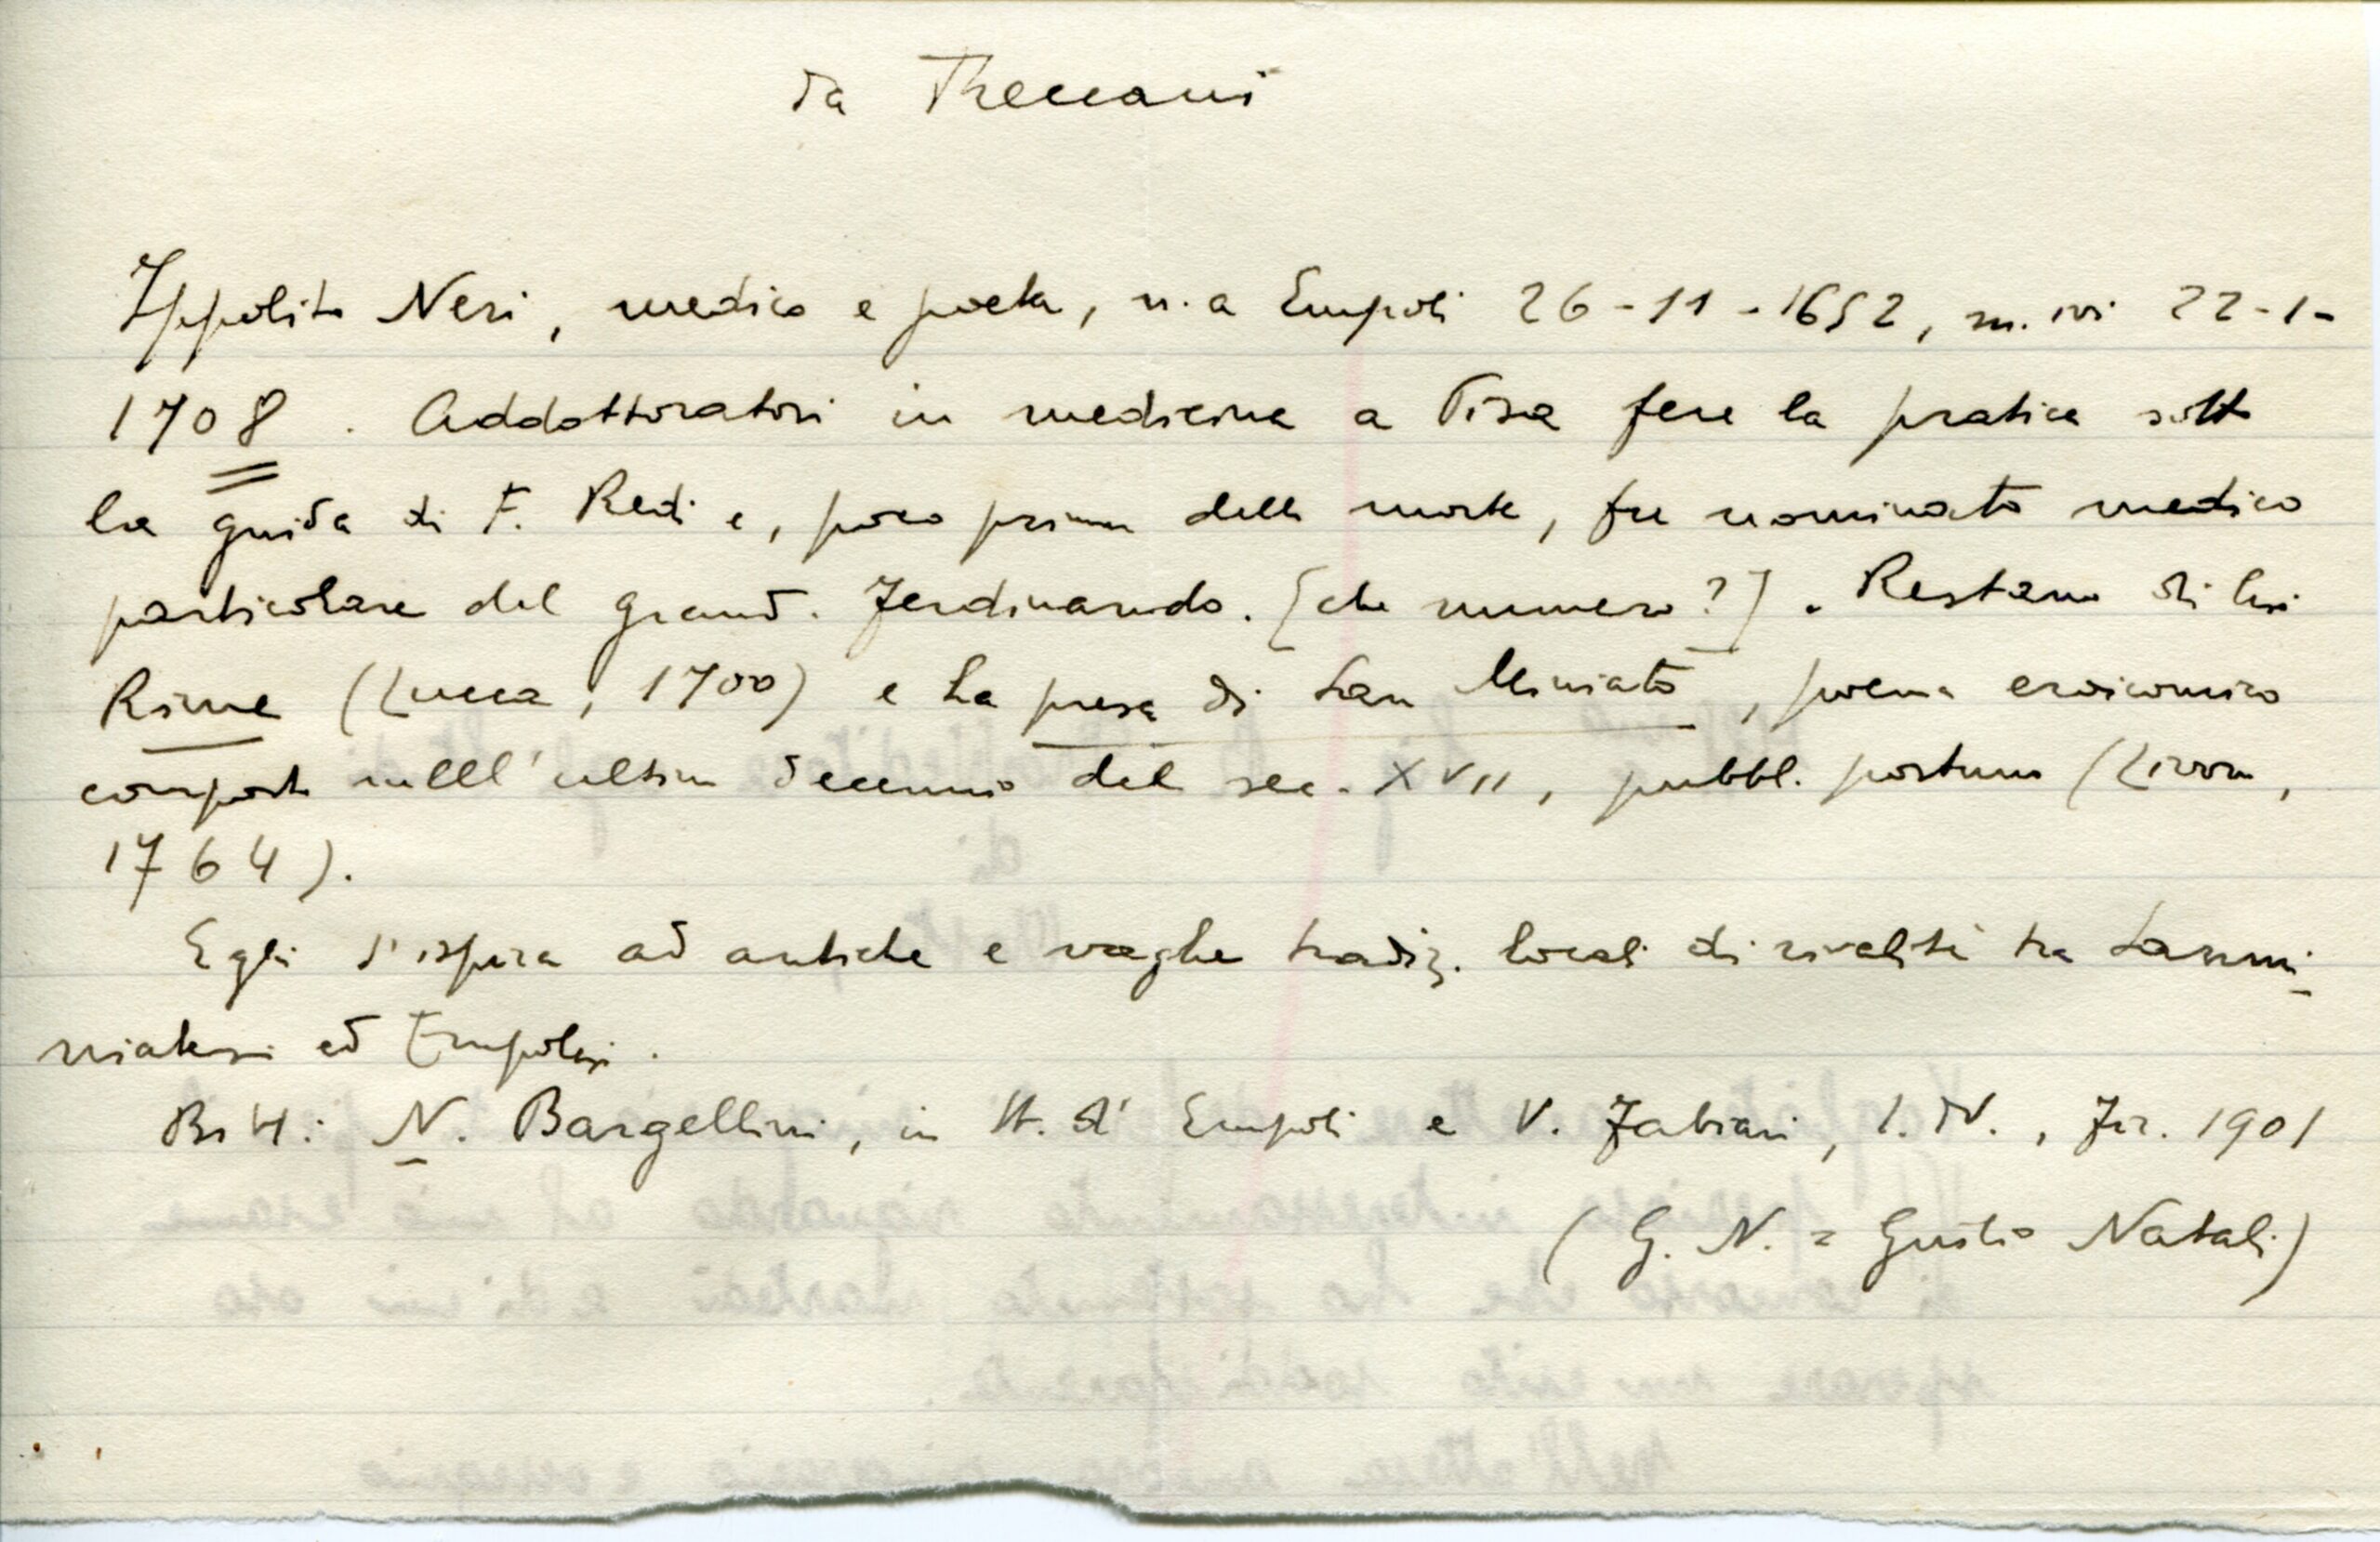 da Treccani
Ippolito Neri, medico e poeta, n. a Empoli 26-11-1652, m. ivi 22-1-
1708. Addottoratosi in medicina a Pisa fece la pratica sotto
la guida di F. Redi e, poco prima della morte, fu nominato medico
particolare del grand. Ferdinando. [che numero?]. Restano di lui
Rime (Lucca, 1700) e La presa di San Miniato, poema eroicomico
composto nell'ultimo decennio del sec. XVII, pubbl. postumo (Livorno,
1764).
Egli s'ispira ad antiche e vaghe tradiz. locali di rivalità tra Sanmi-
niatesi ed Empolesi.
N. Bargellini, in st. d'Empoli e V. Fabiani, I. N., Fir. 1901
(G. N. = Giulio Natali)